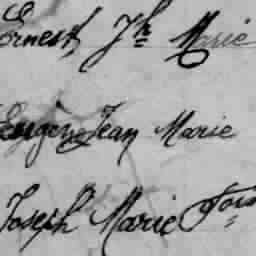 Ernest Jh Marie
Eugène Jean Marie
Joseph Marie